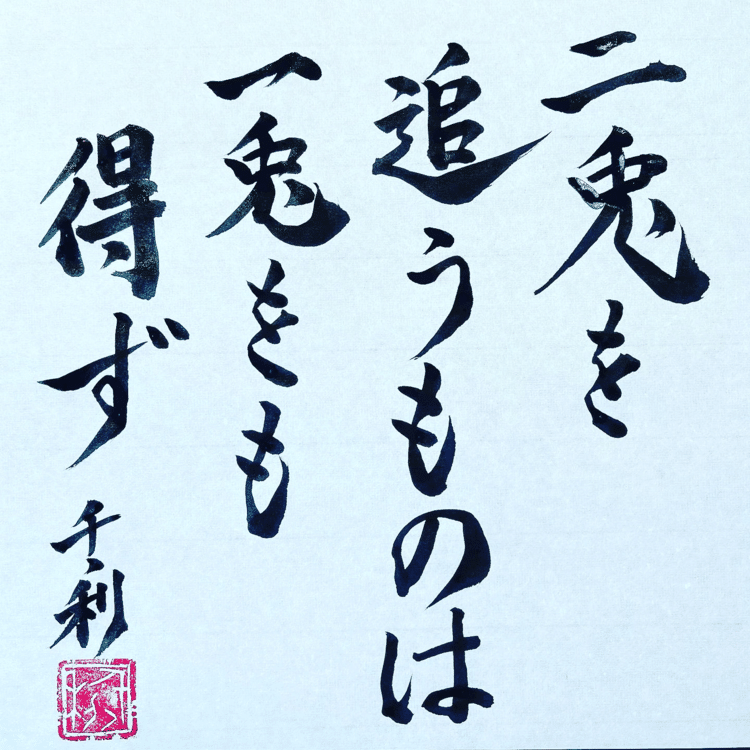 二兎を
追うものは
一兎をも
得ず
千利